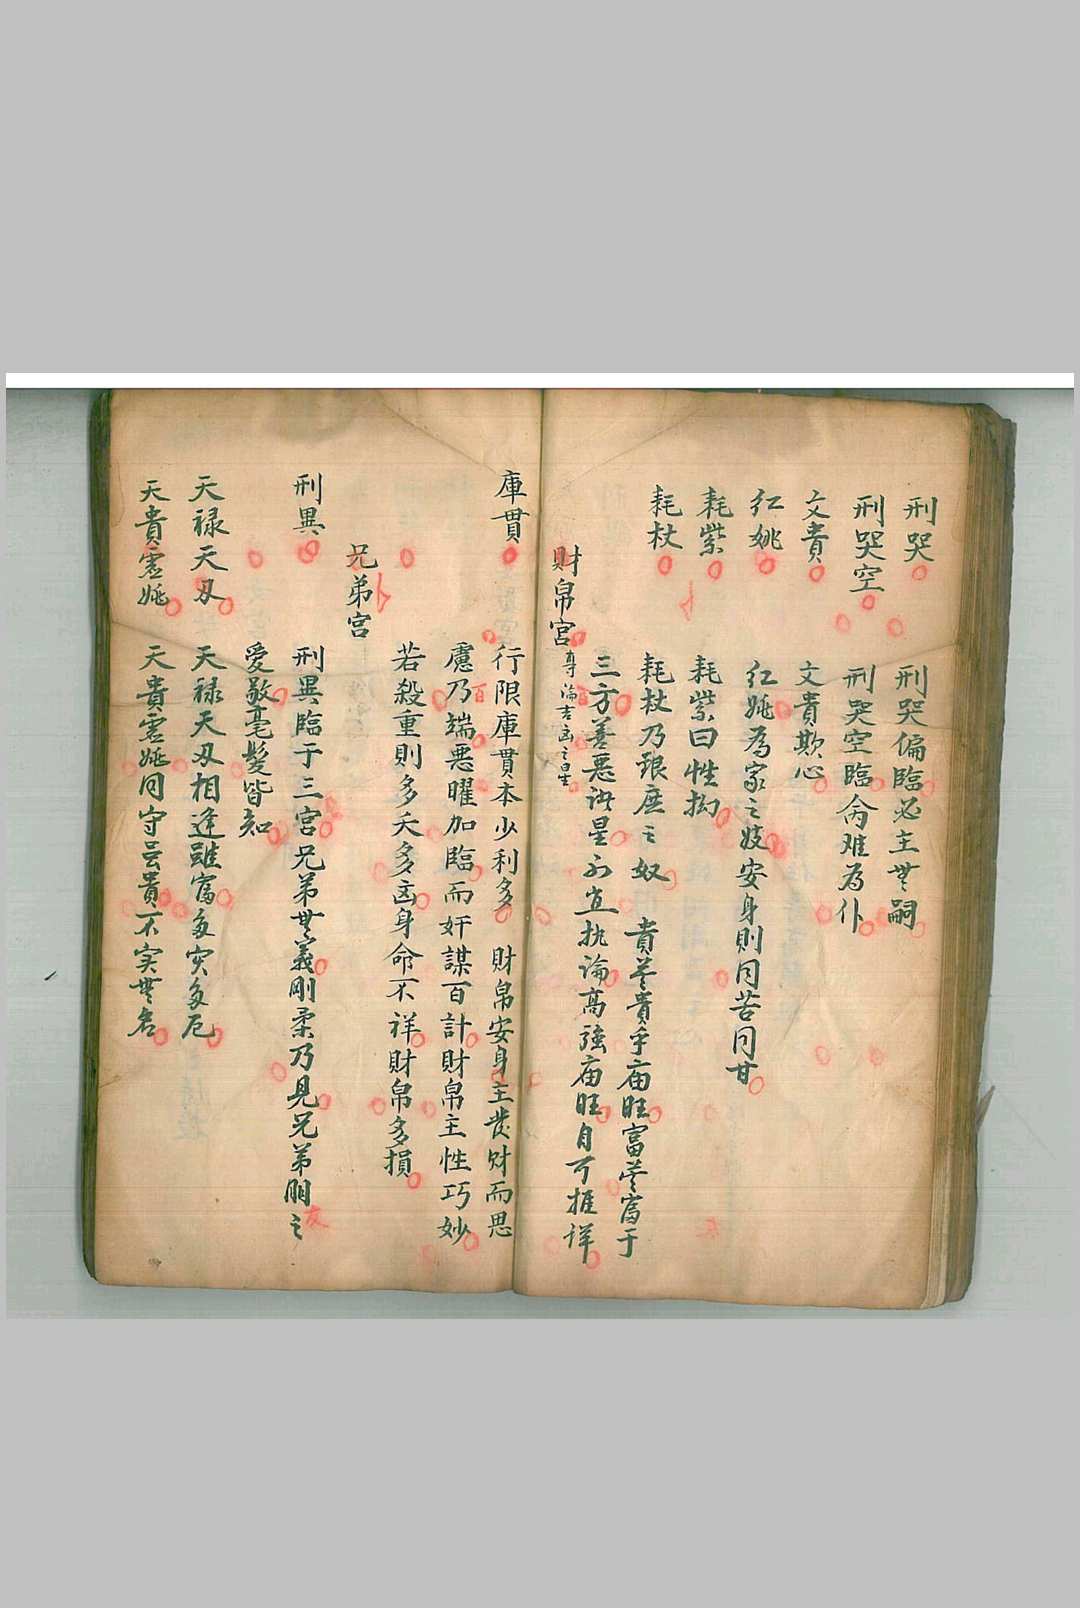 刑哭 刑哭偏臨必主無嗣
刑哭空 刑哭空臨禽难為仆
文貴 文貴欺心
红姚 红姚為家之妓安身則同苦同甘
耗紫 耗紫曰性拗
耗杖 耗杖乃銀庶之奴 貴莫貴乎庙旺富莫富于
三方善惡訣星不宜执論高強庙旺自可推详
財帛宮 專論吉凶之星
庫貫 行限庫貫本少利多 財帛安身主發财而思
慮乃端悪曜加臨而奸謀百計財帛主性巧妙
若殺重則多夭多凶身命不祥財帛多損
兄弟宮
刑異 刑異臨于三宮兄弟無義剛柔乃見兄弟朋友之
愛敬毫髮皆知
天禄天刃 天禄天刃相逢雖富多灾多厄
天貴虛姚 天貴虛姚同守云貴不实無名